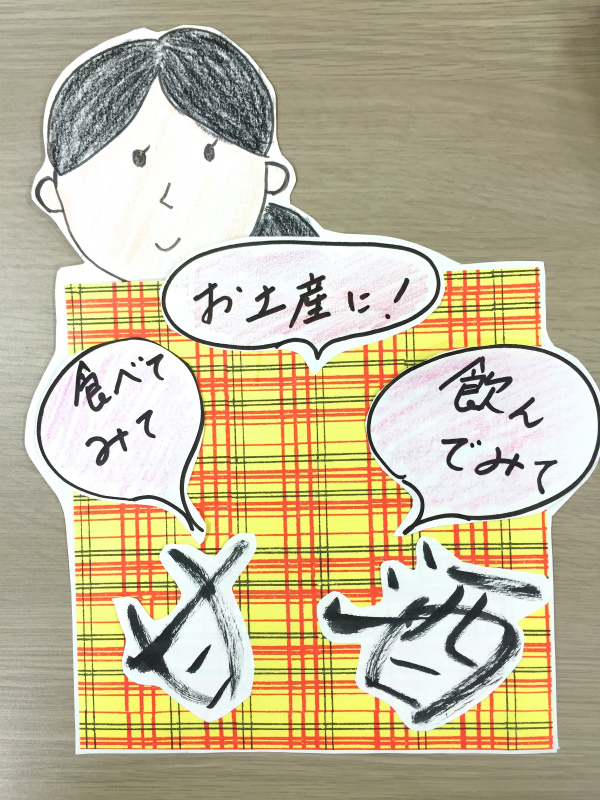 お土産に！
食べて
みて
飲ん
でみて
酒